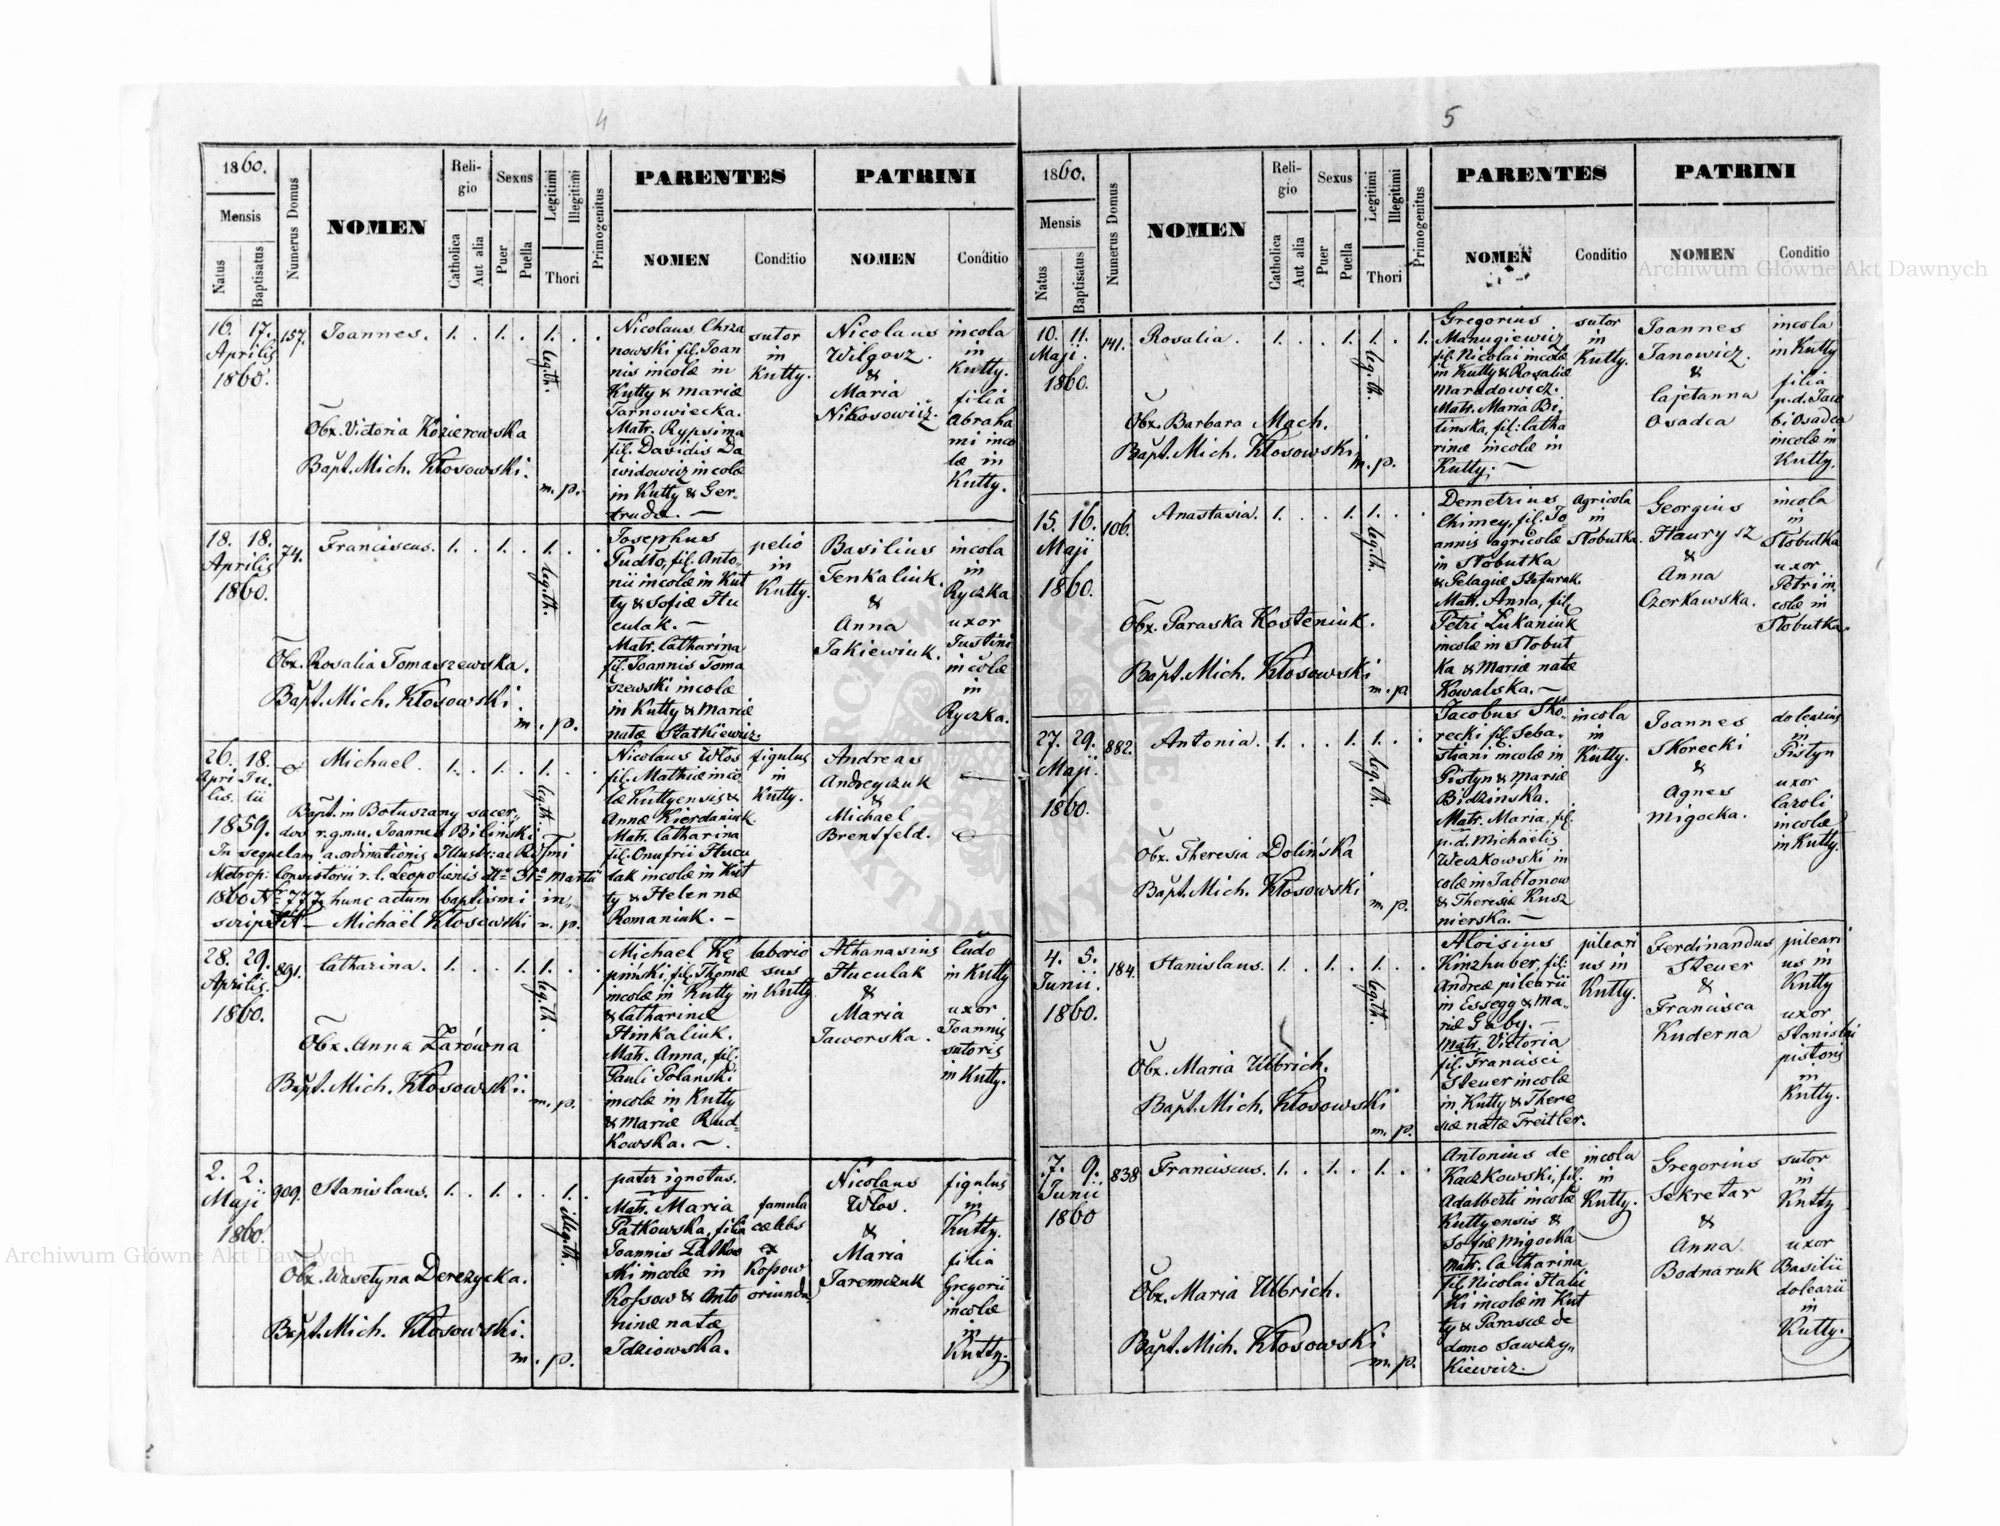 4
1860.
Mensis
Natus
Baptisatus
Numerus Domus
NOMEN
Reli-
gio
Catholica
Aut alia
Sexus
Puer
Puella
Legitimi
Illegitimi
Thori
Primogenitus
PARENTES
NOMEN
Conditio
PATRINI
NOMEN
Conditio
16. 17.
Aprilis
1860.
157.
Joannes.
1. . 1. . 1. . .
leg. th.
Obx. Victoria Kozierowska
Bapt. Mich. Kłosowski.
m. p.
Nicolaus Chrza
nowski fil. Joan
nis incolæ in
Kutty & Mariæ
Tarnowiecka.
Matr. Rypsima
fil. Davidis Da
widowicz incolæ
in Kutty & Ger-
truda. —
sutor
in
Kutty.
Nicolaus
Wilgosz.
&
Maria
Nikosowicz.
incola
in
Kutty.
filia
Abraha
mi inco
læ in
Kutty.
18. 18.
Aprilis
1860.
74.
Franciscus.
1. . 1. . 1. . .
leg. th.
Obx. Rosalia Tomaszewska.
Bapt. Mich. Kłosowski.
m. p.
Josephus
Pudło, fil. Anto-
nii incolæ in Kut
ty & Sofiæ Hu
culak. —
Matr. Catharina
fil. Joannis Toma
szewski incolæ
in Kutty & Mariæ
natæ Statkiewicz.
pelio
in
Kutty.
Basilius
Tenkaliuk.
&
Anna
Jakiewiuk.
incola
in
Ryczka
uxor
Justini
incolæ
in
Ryczka.
26. 18.
Apri Ju-
lis. lii
1859.
Michael.
1. . 1. . 1. . .
leg. th.
Bapt. in Botuszany sacer-
dos r. g. n. u. Joannes Biliński
In sequelam a ordinationis Illustr. ac Rssmi
Metrop: Consistorii r. l. Leopoliensis dto 31a Martii
1860 No 777. hunc actum baptismi in-
scripsit — Michaël Kłosowski m. p.
Nicolaus Włos
fil. Mathiæ inco
læ Kuttyensis &
Annæ Kierdaniuk.
Matr. Catharina
fil. Onufrii Hucu
lak incolæ in Kut
ty & Helennæ
Romaniuk. —
figulus
in
Kutty.
Andreas
Andreyczuk
&
Michael
Brentfeld.
28. 29.
Aprilis.
1860.
891.
Catharina.
1. . . 1. 1. . .
leg. th.
Obx. Anna Żarówna
Bapt. Mich. Kłosowski.
m. p.
Michael Kę
piński, fil. Thomæ
incolæ in Kutty
& Catharinæ
Hinkaliuk.
Matr. Anna, fil.
Pauli Polanski
incolæ in Kutty
& Mariæ Rud-
kowska. —.
laborio
sus
in Kutty
Athanasius
Huculak
&
Maria
Jaworska.
ludo
in Kutty
uxor
Joannis
sutoris
in Kutty.
2. 2.
Maji
1860.
909.
Stanislaus.
1. . 1. . . 1. .
illeg. th.
Obx. Wasetyna Derezycka.
Bapt. Mich. Kłosowski.
m. p.
pater ignotus.
Matr. Maria
Patkowska, filia
Joannis Patkow
ski incolæ in
Kossow & Anto
ninæ natæ
Idziowska.
famula
cælebs
ex
Kossow
oriunda
Nicolaus
Włos.
&
Maria
Jaremczuk
figulus
in
Kutty.
filia
Gregorii
incolæ
in
Kutty.
5
1860.
Mensis
Natus
Baptisatus
Numerus Domus
NOMEN
Reli-
gio
Catholica
Aut alia
Sexus
Puer
Puella
Legitimi
Illegitimi
Thori
Primogenitus
PARENTES
NOMEN
Conditio
PATRINI
NOMEN
Conditio
10. 11.
Maji.
1860.
141.
Rosalia.
1. . . 1. 1. . 1.
leg. th.
Obx. Barbara Mach.
Bapt. Mich. Kłosowski
m. p.
Gregorius
Manugiewicz
fil. Nicolai incolæ
in Kutty & Rosaliæ
Maradowicz.
Matr. Maria Bi-
linska, fil: Catha
rinæ incolæ in
Kutty. —
sutor
in
Kutty.
Joannes
Janowicz.
&
Cajetanna
Osadca
incola
in Kutty
filia
p. d. Jaco
bi Osadca
incolæ in
Kutty.
15. 16.
Maji
1860.
106.
Anastasia.
1. . . 1. 1. . .
leg. th.
Obx. Paraska Kosteniuk.
Bapt. Mich. Kłosowski
m. p
Demetrius
Chimey, fil. Jo
annis agricolæ
in Słobutka
& Pelagiæ Stefurak.
Matr. Anna, fil.
Petri Łukaniuk
incolæ in Słobut
ka & Mariæ natæ
Kowalska. —
agricola
in
Słobutka.
Georgius
Haurysz
&
Anna
Czerkawska.
incola
in
Słobutka
uxor
Petri in-
colæ in
Słobutka.
27. 29.
Maji.
1860.
882.
Antonia.
1. . . 1. 1. . .
leg. th.
Obx. Theresia Dolińska
Bapt. Mich. Kłosowski
m. p.
Jacobus Sko-
recki fil. Seba-
stiani incolæ in
Pistyn & Mariæ
Bidzińska.
Matr. Maria, fil.
p. d. Michaëlis
Weczkowski in
colæ in Jabłonow
& Theresiæ Kusz
nierska. —
incola
in
Kutty.
Joannes
Skorecki
&
Agnes
Migocka.
dolearius
in
Pistyn
uxor
Caroli
incolæ
in Kutty.
4. 5.
Junii.
1860.
184.
Stanislaus.
1. . 1. . 1. . .
leg. th.
Obx. Maria Ulbrich.
Bapt. Mich. Kłosowski
m. p.
Aloisius
Kinzhuber, fil:
Andreæ pilearii
in Essegg & Ma-
riæ Gaby. —
Matr. Victoria
fil. Francisci
Steuer incolæ
in Kutty & There
siæ natæ Freitler.
pileari
us in
Kutty.
Ferdinandus
Steuer
&
Francisca
Kuderna
pileari
us in
Kutty
uxor
Stanislai
pistoris
in
Kutty.
7. 9.
Junii
1860
838
Franciscus.
1. . 1. . 1. . .
Obx. Maria Ulbrich.
Bapt. Mich. Kłosowski
m. p.
Antonius de
Kaczkowski, fil.
Adalberti incolæ
Kuttyensis &
Sofiæ Migocka —
Matr. Catharina,
fil. Nicolai Halic
ki incolæ in Kut
ty & Parascæ de
domo Sawczy-
kiewicz.
incola
in
Kutty.
Gregorius
Sekretar
&
Anna
Bodnaruk
sutor
in
Kutty
uxor
Basilii
dolearii
in
Kutty.
Archiwum Główne Akt Dawnych
Archiwum Główne Akt Dawnych
ARCHIWUM GŁÓWNE · AKT DAWNYCH ·